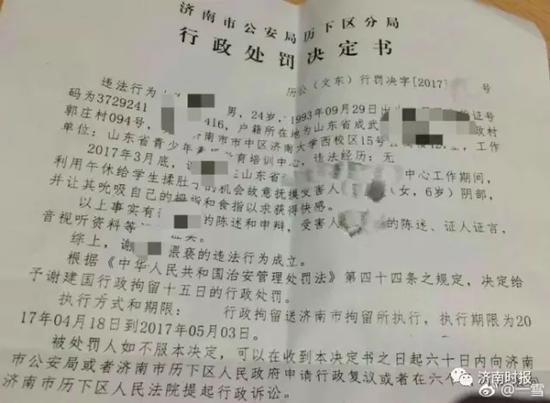 济南市公安局历下区分局
行政处罚决定书
历公（文东）行罚决字[2017] 号
违法行为 男，24岁，1993年09月29日出 证号
码为3729241 416，户籍所在地为山东省成武 政村
郭庄村094号， 济南市市中区济南大学西校区15号 工作
单位：山东省青少年 教育培训中心，违法经历：无
2017年3月底， 在山东省 中心工作期间，
利用午休给学生揉肚子的机会故意抚摸受害人 （女，6岁）阴部，
并让其吮吸自己的拇指和食指以求获得快感。
以上事实有 的陈述和申辩，受害人 的陈述、证人证言，
音视听资料等
综上，谢 猥亵的违法行为成立。
根据《中华人民共和国治安管理处罚法》第四十四条之规定，决定给
予谢建国行政拘留十五日的行政处罚。
执行方式和期限： 行政拘留送济南市拘留所执行，执行期限为20
17年04月18日到2017年05月03日。
被处罚人如不服本决定，可以在收到本决定书之日起六十日内向济南
市公安局或者济南市历下区人民政府申请行政复议或者在六个
济南市历下区人民法院提起行政诉讼。
济南时报
@一雪